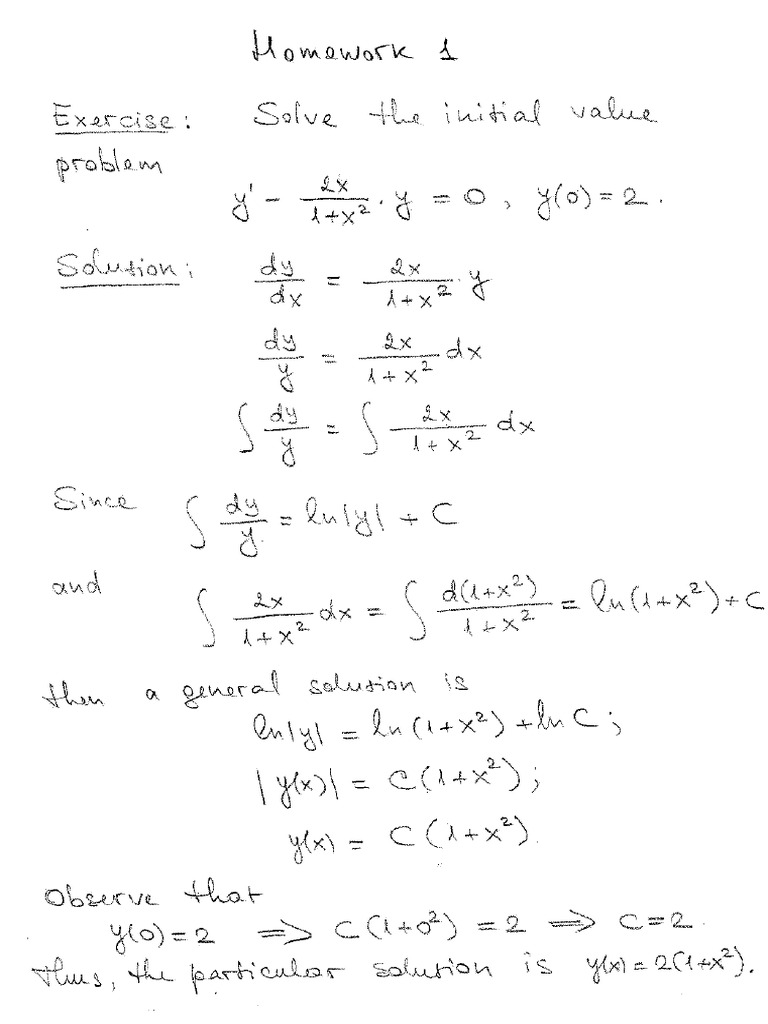 Homework 1
Exercise: Solve the initial value
problem
y' - 2x/(1+x²) · y = 0, y(0) = 2.
Solution: dy/dx = 2x/(1+x²) · y
dy/y = 2x/(1+x²) dx
∫ dy/y = ∫ 2x/(1+x²) dx
Since ∫ dy/y = ln|y| + C
and ∫ 2x/(1+x²) dx = ∫ d(1+x²)/(1+x²) = ln(1+x²) + C
then a general solution is
ln|y| = ln(1+x²) + ln C;
|y(x)| = C(1+x²);
y(x) = C(1+x²).
Observe that
y(0) = 2 ⟹ C(1+0²) = 2 ⟹ C = 2.
Thus, the particular solution is y(x) = 2(1+x²).